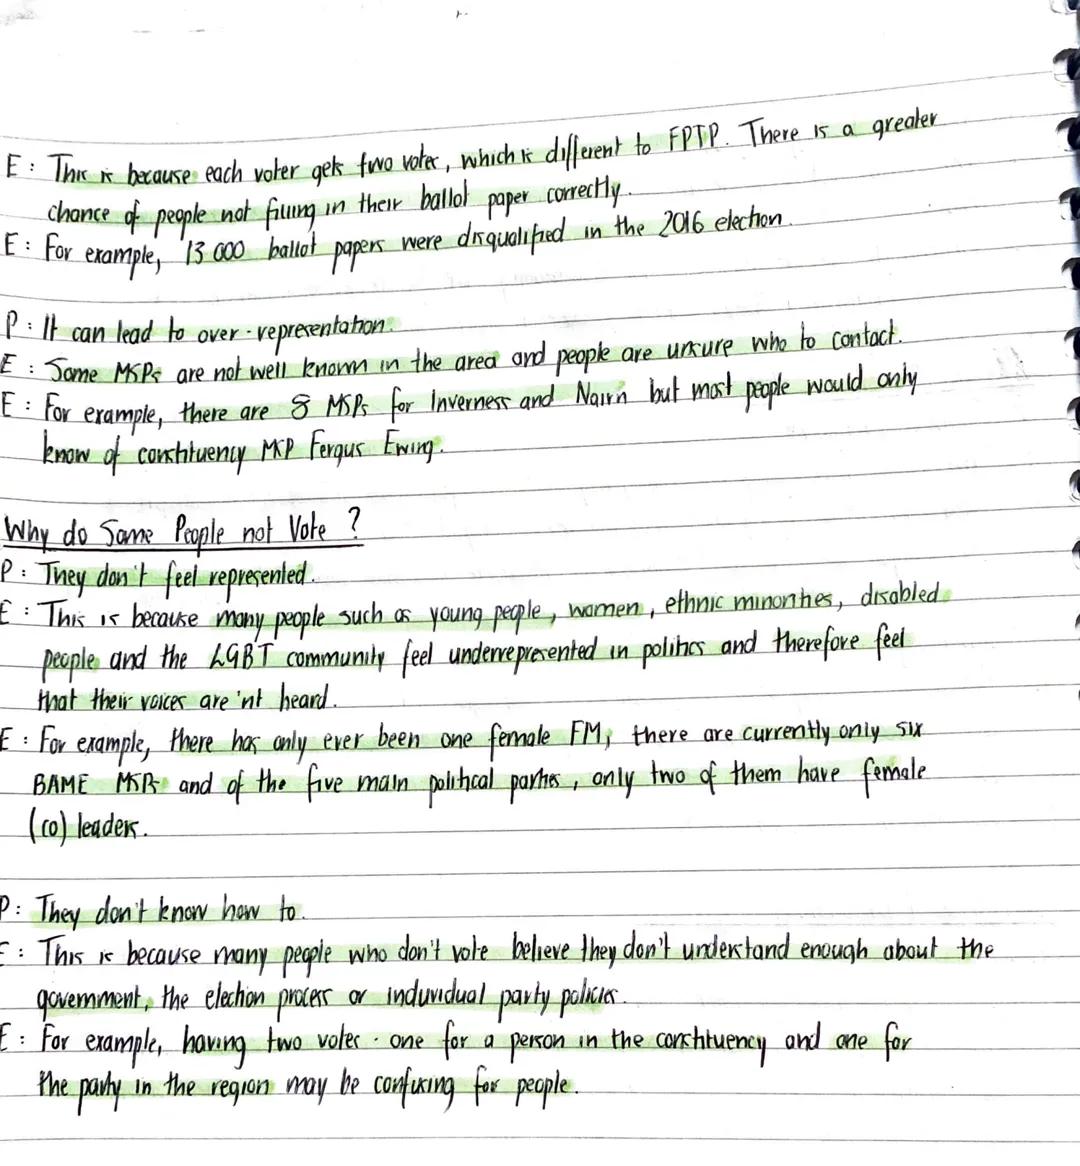 E : This is because each voter gets two votes, which is different to FPTP. There is a greater
chance of people not filling in their ballot paper correctly.
E : For example, 13 000 ballot papers were disqualified in the 2016 election.
P : It can lead to over-representation.
E : Some MSPs are not well known in the area and people are unsure who to contact.
E : For example, there are 8 MSPs for Inverness and Nairn but most people would only
know of constituency MSP Fergus Ewing.
Why do Some People not Vote ?
P : They don't feel represented.
E : This is because many people such as young people, women, ethnic minorities, disabled
people and the LGBT community feel underrepresented in politics and therefore feel
that their voices are'nt heard.
E : For example, there has only ever been one female FM, there are currently only six
BAME MSPs and of the five main political parties, only two of them have female
(co) leaders.
P : They don't know how to.
E : This is because many people who don't vote believe they don't understand enough about the
government, the election process or induvidual party policies.
E : For example, having two votes - one for a person in the constituency and one for
the party in the region may be confusing for people.